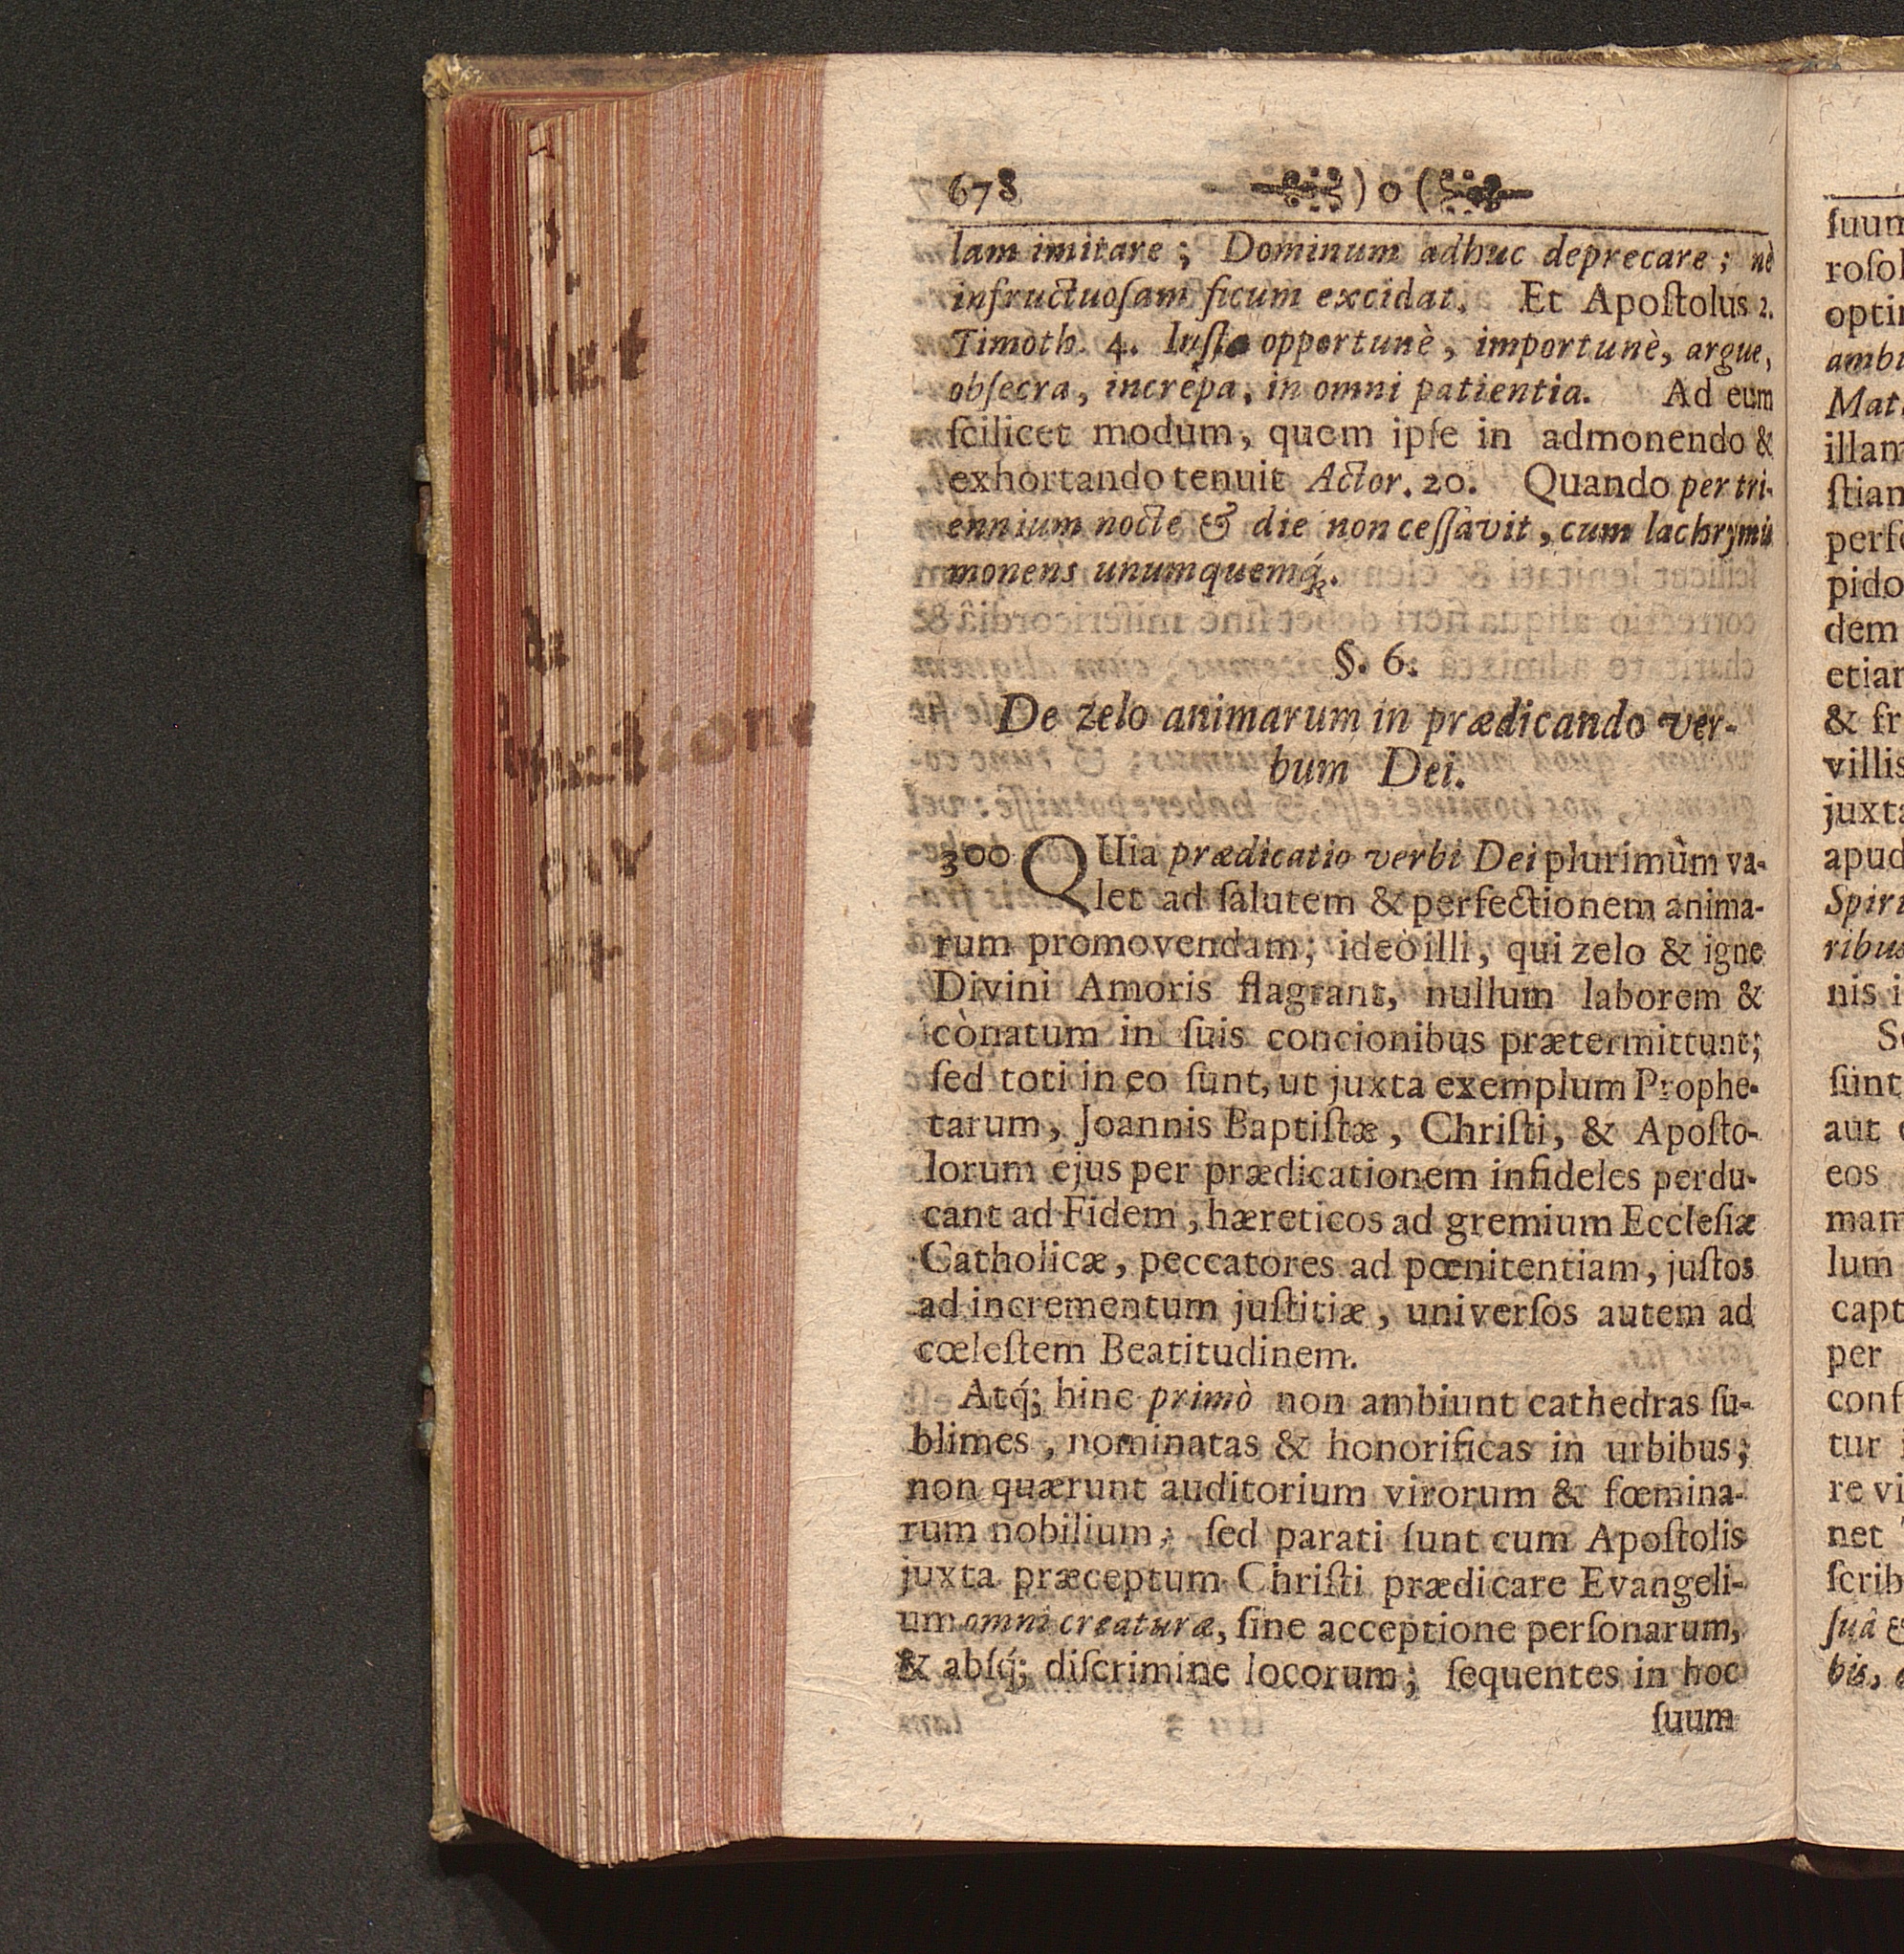 678 ) o (
lam imitare ; Dominum adhuc deprecare ; nè
infructuoſam ficum excidat. Et Apoſtolus 2.
Timoth. 4. Inſta opportunè, importunè, argue,
obſecra, increpa, in omni patientia. Ad eum
ſcilicet modum, quem ipſe in admonendo &
exhortando tenuit Actor. 20. Quando per tri-
ennium nocte & die non ceſſavit, cum lachrymis
monens unumquemq́;.
§. 6.
De zelo animarum in prædicando ver-
bum Dei.
300 QUia prædicatio verbi Dei plurimùm va-
let ad ſalutem & perfectionem anima-
rum promovendam; ideò illi, qui zelo & igne
Divini Amoris flagrant, nullum laborem &
cònatum in ſuis concionibus prætermittunt;
ſed toti in eo ſunt, ut juxta exemplum Prophe-
tarum, Joannis Baptiſtæ, Chriſti, & Apoſto-
lorum ejus per prædicationem infideles perdu-
cant ad Fidem, hæreticos ad gremium Eccleſiæ
Catholicæ, peccatores ad pœnitentiam, juſtos
ad incrementum juſtitiæ, univerſos autem ad
cœleſtem Beatitudinem.
Atq́; hinc primò non ambiunt cathedras ſu-
blimes, nominatas & honorificas in urbibus;
non quærunt auditorium virorum & fœmina-
rum nobilium; ſed parati ſunt cum Apoſtolis
juxta præceptum Chriſti prædicare Evangeli-
um omni creaturæ, ſine acceptione perſonarum,
& abſq́; diſcrimine locorum; ſequentes in hoc
ſuum
roſol
optim
ambu
Mat
illam
ſtian
perfe
pido
dem
etiam
& fr
villis
juxta
apud
Spiri
ribus
nis i
Se
ſunt
aut
eos
mam
lum
capt
per
conſ
tur
re vi
net
ſcrib
ſuâ &
bis,